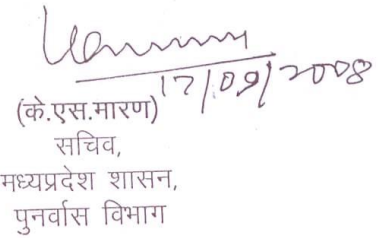 17/09/2008
(के.एस.मारण)
सचिव,
मध्यप्रदेश शासन,
पुनर्वास विभाग